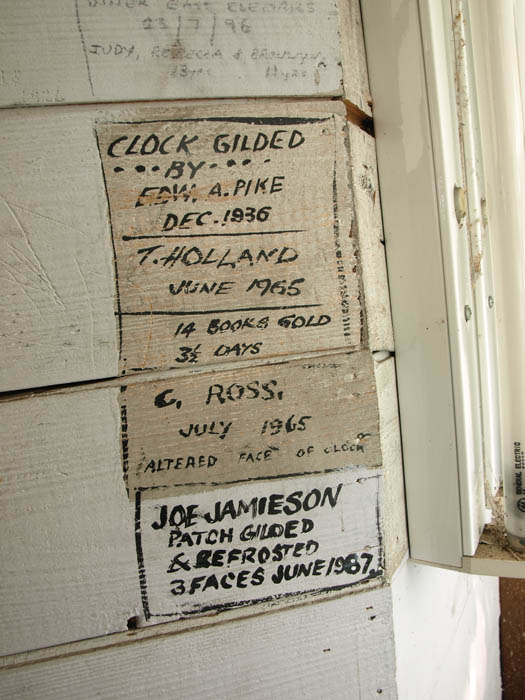 DINER EASE ELEMAKS
23/7/96
JUDY, REBECCA & BRONWYN
CLOCK GILDED
BY
EDW. A. PIKE
DEC. 1936
T. HOLLAND
JUNE 1965
14 BOOKS GOLD
3½ DAYS
C. ROSS.
JULY 1965
ALTERED FACE OF CLOCK
JOE JAMIESON
PATCH GILDED
& REFROSTED
3 FACES JUNE 1987.
GENERAL ELECTRIC